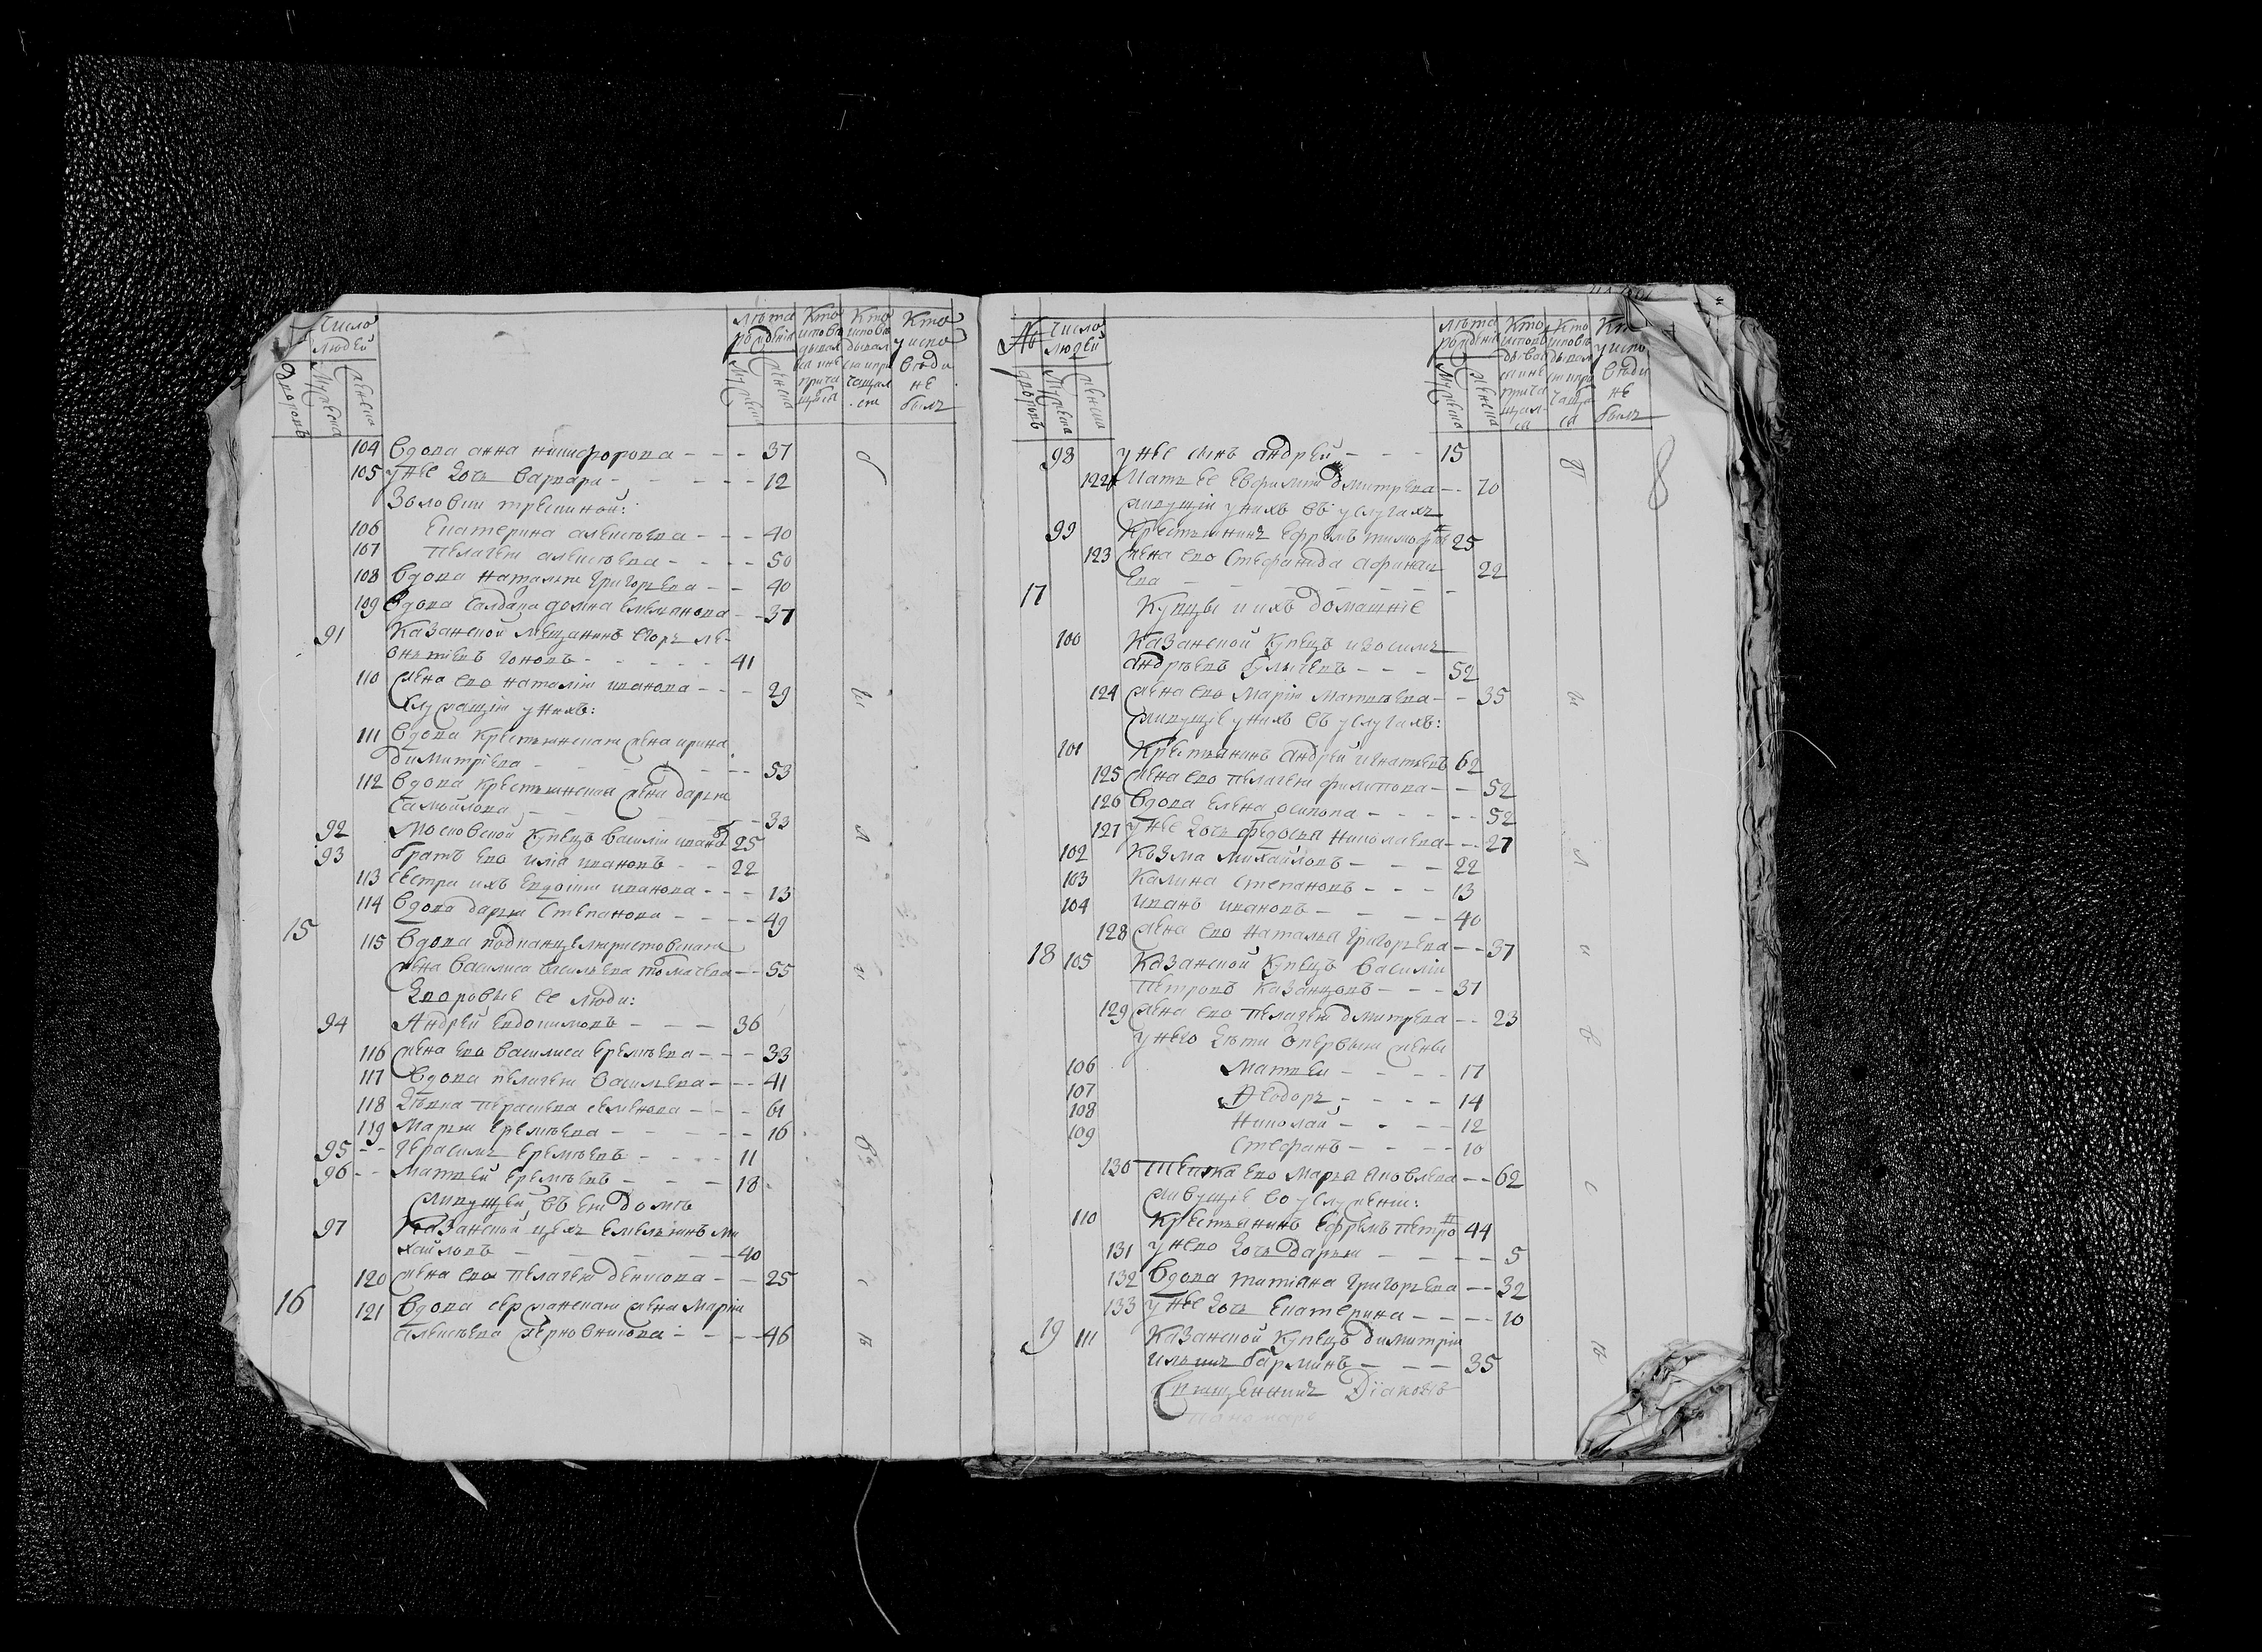 Число людей
дворовъ
мужеска
женска
лѣта рожденія
мужеска
женска
Кто исповѣдывался и не причащался
Кто исповѣдывался и причащался
Кто у исповѣди не былъ
104 Вдова анна никифорова - - - 37
105 у нее дочь варвара - - - 12
Золовки
106 Екатерина алексѣева - - - 40
107 пелагея алексѣева - - - 50
108 Вдова наталья григорьева - - 40
109 Вдова салдатка домна емельянова - - 37
91 Казанской мещанинъ егоръ ле-
онтіевъ - - - 41
110 жена ево наталія иванова - - - 29
служащія у нихъ:
111 Вдова крестьянская жена ирина
димитріева - - - 53
112 Вдова крестьянская жена дарья
самойлова - - - 33
92 Московской купецъ василій иванов 25
93 братъ ево илія ивановъ - - 22
113 сестра ихъ евдокия иванова - - - 13
114 Вдова дарья степанова - - - 49
15 115 Вдова подканцеляристовская
жена василиса васильева толмачева - - 55
Дворовые ее люди:
94 Андрей евдокимовъ - - - 36
116 жена ево василиса еремѣева - - - 33
117 Вдова пелагея васильева - - - 41
118 Дѣвка парасковья семенова - - - 61
119 марья еремѣева - - - 16
95 - - герасимъ еремѣевъ - - - 11
96 - - матвей еремѣевъ - - - 18
живущей въ ея домѣ
97 Казанской цехъ емельянъ ми
хайловъ - - - 40
120 жена ево пелагея денисова - - 25
16 121 Вдова сержанская жена марія
алексѣева жерновникова - - - 46
№
Число людей
дворовъ
мужеска
женска
лѣта рожденія
мужеска
женска
Кто исповѣдывался и не причащался
Кто исповѣдывался и причащался
Кто у исповѣди не былъ
8
98 у нее сынъ андрей - - - 15
122 Мать ее евфимия дмитрева - - 70
живущія у нихъ въ услугахъ
99 Крестьянинъ ефремъ тимофѣе 25
123 жена ево стефанида афонась
ева - - - 22
17 Купцы и ихъ домашніе
100 Казанской купецъ изосимъ
андрѣевъ булыгевъ - - - 52
124 жена ево марія матвѣева - - 35
живущіе у нихъ въ услугахъ:
101 Крестьянинъ андрей игнатьевъ 62
125 жена ево пелагея филипова - - 52
126 Вдова елена осипова - - - 52
127 у нее дочь федосья николаева - - - 27
102 Козма михайловъ - - - 22
103 Калина степановъ - - - 13
104 иванъ ивановъ - - - 40
128 жена ево наталья григорьева - - 37
18 105 Казанской купецъ василій
петровъ казанцовъ - - - 37
129 жена ево пелагея дмитрева - - 23
у него дѣти от первыя жены
106 матвей - - - 17
107 Феодоръ - - - 14
108 николай - - - 12
109 стефанъ - - - 10
130 тетка ево марья яковлева - - 62
живущіе во услуженіи:
110 крестьянинъ ефремъ петро 44
131 у нево дочь дарья - - - 5
132 Вдова татіана григорьева - - 32
133 у нее дочь екатерина - - - 10
19 111 Казанской купецъ димитрій
ильинъ - - - 35
Священникъ Діаконъ
пономарь